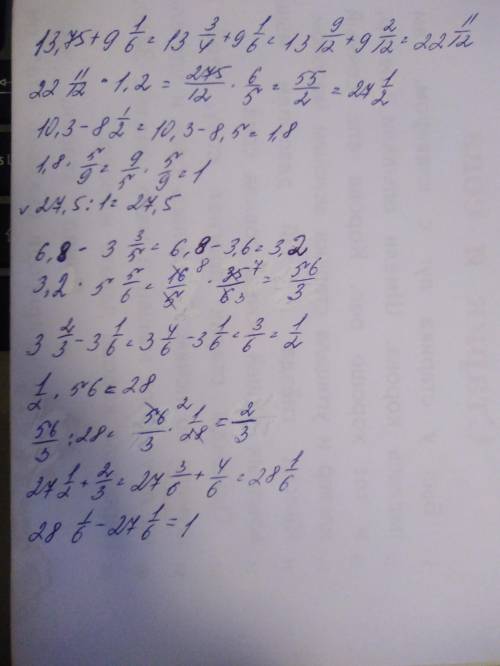 13,75+9 1/6 = 13 3/4 + 9 1/6 = 13 9/12 + 9 2/12 = 22 11/12
22 11/12 · 1,2 = 275/12 · 6/5 = 55/2 = 27 1/2
10,3 - 8 1/2 = 10,3 - 8,5 = 1,8
1,8 · 5/9 = 9/5 · 5/9 = 1
√ 27,5 : 1 = 27,5
6,8 - 3 3/5 = 6,8 - 3,6 = 3,2
3,2 · 5 5/6 = 16 8/5 · 35 7/6 3 = 56/3
3 2/3 - 3 1/6 = 3 4/6 - 3 1/6 = 3/6 = 1/2
1/2 · 56 = 28
56/3 : 28 = 56 2/3 · 1/28 = 2/3
27 1/2 + 2/3 = 27 3/6 + 4/6 = 28 1/6
28 1/6 - 27 1/6 = 1